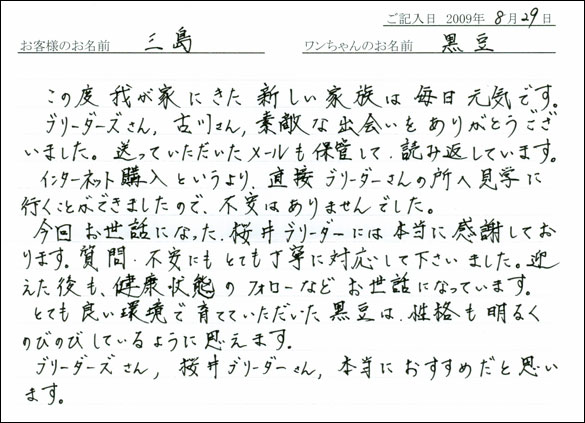 ご記入日 2009年 8月29日
お客様のお名前 三島 ワンちゃんのお名前 黒豆
この度 我が家にきた 新しい家族は 毎日 元気です。
ブリーダーズさん, 古川さん, 素敵な出会いを ありがとうござ
いました。送っていただいた メールも 保管して 読み返しています。
インターネット購入というより、直接ブリーダーさんの所へ見学に
行くことができましたので、不安はありませんでした。
今回 お世話になった, 桜井ブリーダーには 本当に 感謝してお
ります。質問・不安にも とても丁寧に 対応して下さいました。迎
えた後も、健康状態の フォローなど お世話になっています。
とても 良い環境で 育てていただいた 黒豆は、性格も 明るく
のびのびしているように 思えます。
ブリーダーズさん, 桜井ブリーダーさん, 本当に おすすめだと思い
ます。